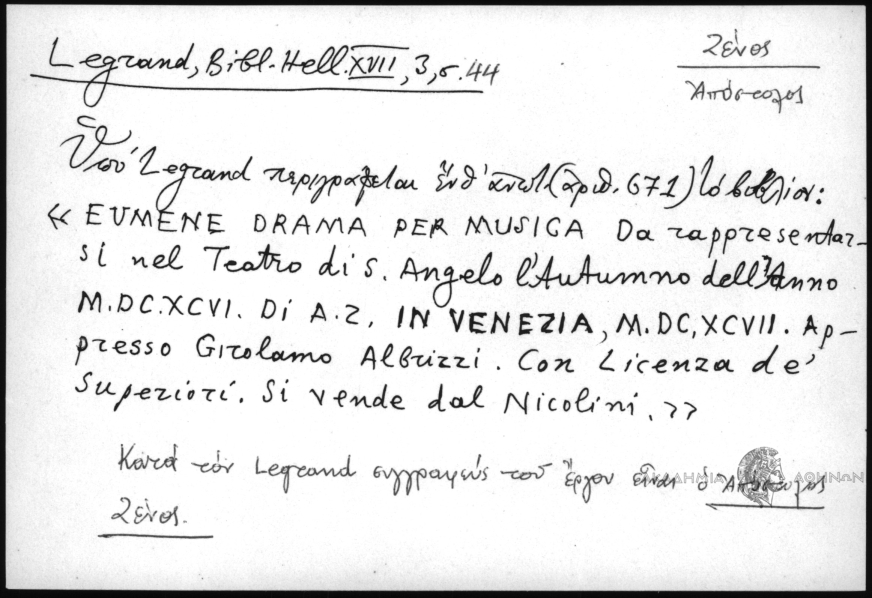 Legrand, Bibl. Hell. XVII, 3, σ. 44
Ζένος
Ἀπόστολος
Ὑπό Legrand περιγράφεται ἐνθ' ἀνωτ. (ἀριθ. 671) τό βιβλίον:
« EUMENE DRAMA PER MUSICA Da rappresentar-
si nel Teatro di S. Angelo l'Autumno dell'Anno
M.DC.XCVI. Di A.Z. IN VENEZIA, M.DC,XCVII. Ap-
presso Girolamo Albrizzi. Con Licenza de'
Superiori. Si vende dal Nicolini. »
Κατά τόν Legrand συγγραφεύς τοῦ ἔργου εἶναι ὁ Ἀπόστολος
Ζένος.
ΑΚΑΔΗΜΙΑ ΑΘΗΝΩΝ